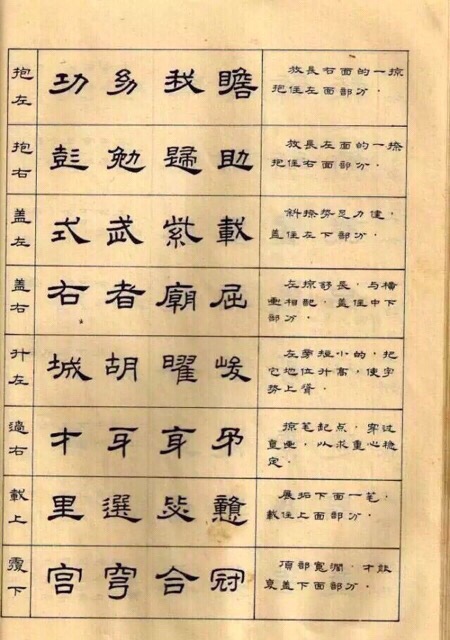 抱左 功 幼 我 瞻
放長右面的一掠
抱住左面部分.
抱右 彭 勉 歸 助
放長左面的一捺
抱住右面部分.
盖左 式 武 紫 載
斜捺势足力健,
盖住左下部分.
盖右 右 者 廟 屈
左掠舒長,与橫
畫相配,盖住中下
部分.
升左 城 胡 曜 峻
左旁短小的,把
它地位升高,使字
势上聳.
過右 才 牙 身
掠笔起点,穿过
直畫,以求重心穩
定.
載上 里 選
展拓下面一笔,
載住上面部分.
覆下 宫 穹 合 冠
頂部寬濶,才能
盖下面部分.